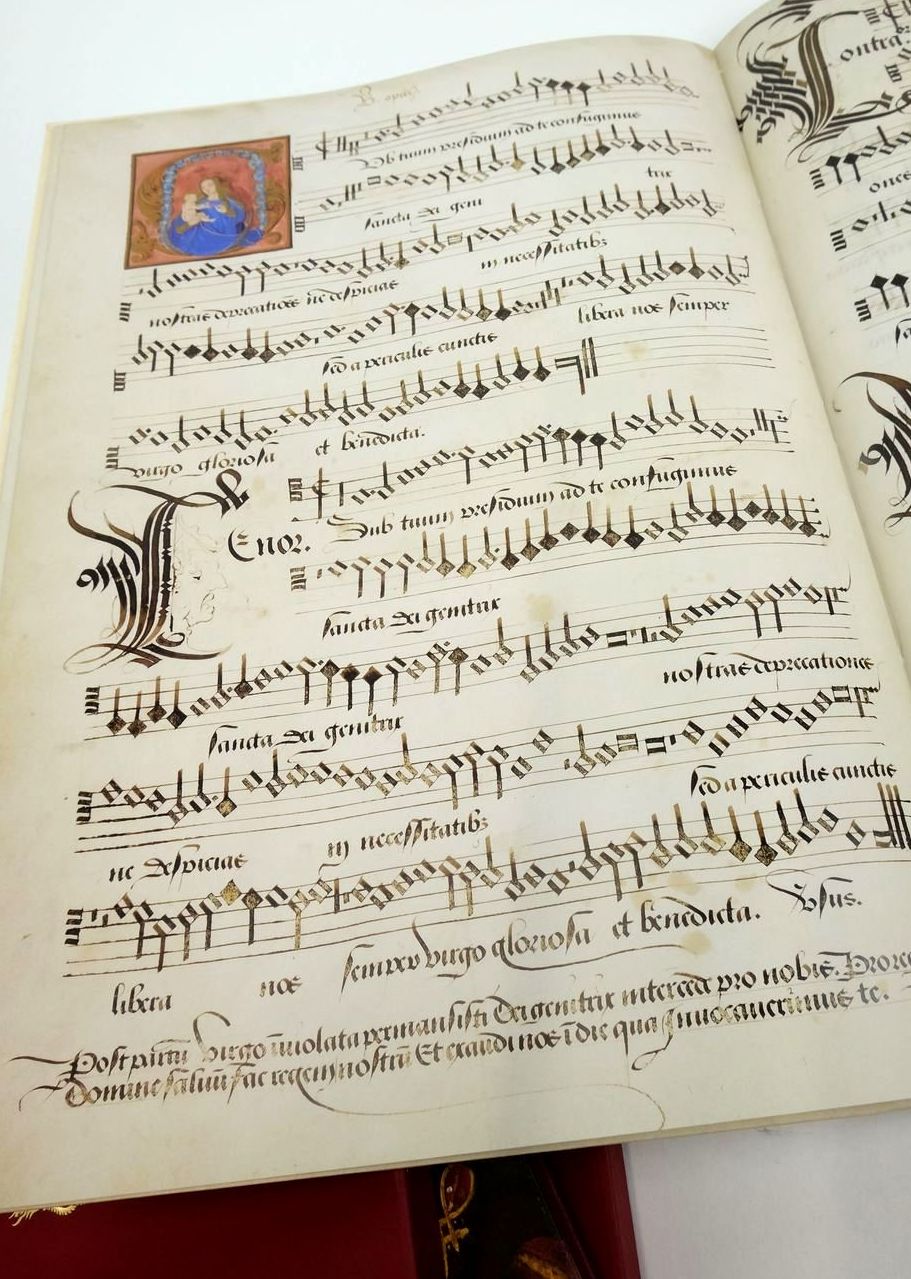 B. opitijs
Sub tuum presidium ad te confugimus
sancta dei geni trix
nostras deprecationes ne despicias in necessitatibz
sed a periculis cunctis libera nos semper
virgo gloriosa et benedicta.
Tenor. Sub tuum presidium ad te confugimus
sancta dei genitrix
sancta dei genitrix nostras deprecationes
ne despicias in necessitatibz sed a periculis cunctis
libera nos semper virgo gloriosa et benedicta. Vsus.
Post partū virgo īuiolata permansisti Dei genitrix intercede pro nobis.
Domine saluū fac regem nostrū Et exaudi nos ī die qua Inuocauerimus te.
Contra